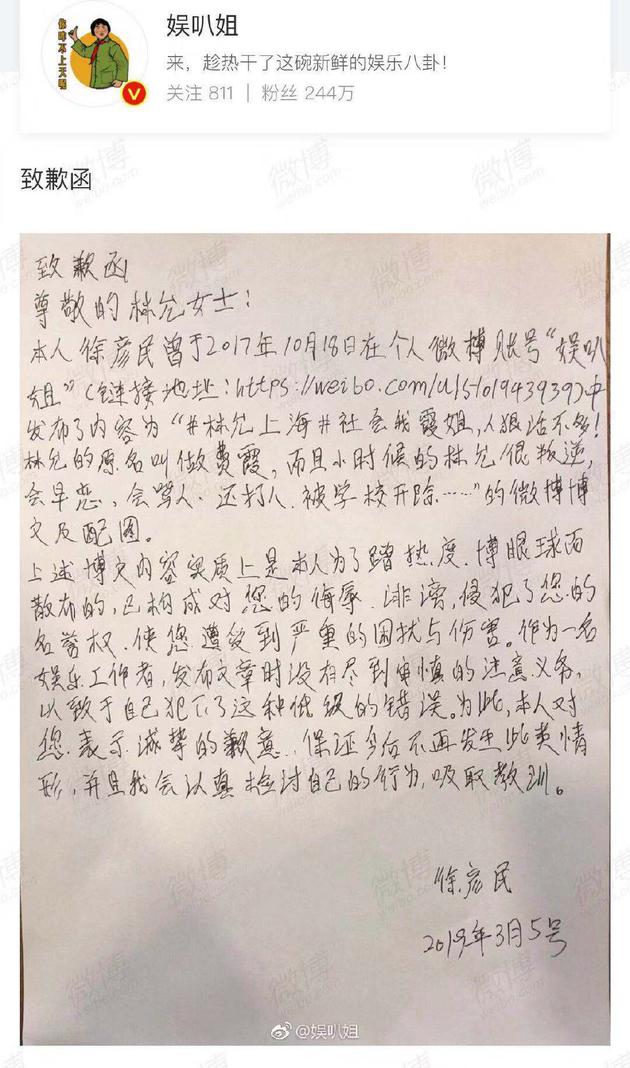 你咋不上天呢
娱叭姐
来，趁热干了这碗新鲜的娱乐八卦！
关注 811 | 粉丝 244万
致歉函
致歉函
尊敬的林允女士：
本人徐彦民曾于2017年10月18日在个人微博账号“娱叭
姐”（链接地址：https://weibo.com/u/5101943939）中
发布了内容为“#林允上海#社会我霞姐，人狠话不多！
林允的原名叫做费霞，而且小时候的林允很叛逆，
会早恋、会骂人、还打人、被学校开除……”的微博博
文及配图。
上述博文内容实质上是本人为了蹭热度、博眼球而
散布的，已构成对您的侮辱、诽谤，侵犯了您的
名誉权，使您遭受到严重的困扰与伤害。作为一名
娱乐工作者，发布文章时没有尽到审慎的注意义务，
以致于自己犯下了这种低级的错误。为此，本人对
您表示诚挚的歉意，保证今后不再发生此类情
形，并且我会认真检讨自己的行为，吸取教训。
徐彦民
2019年3月5号
@娱叭姐